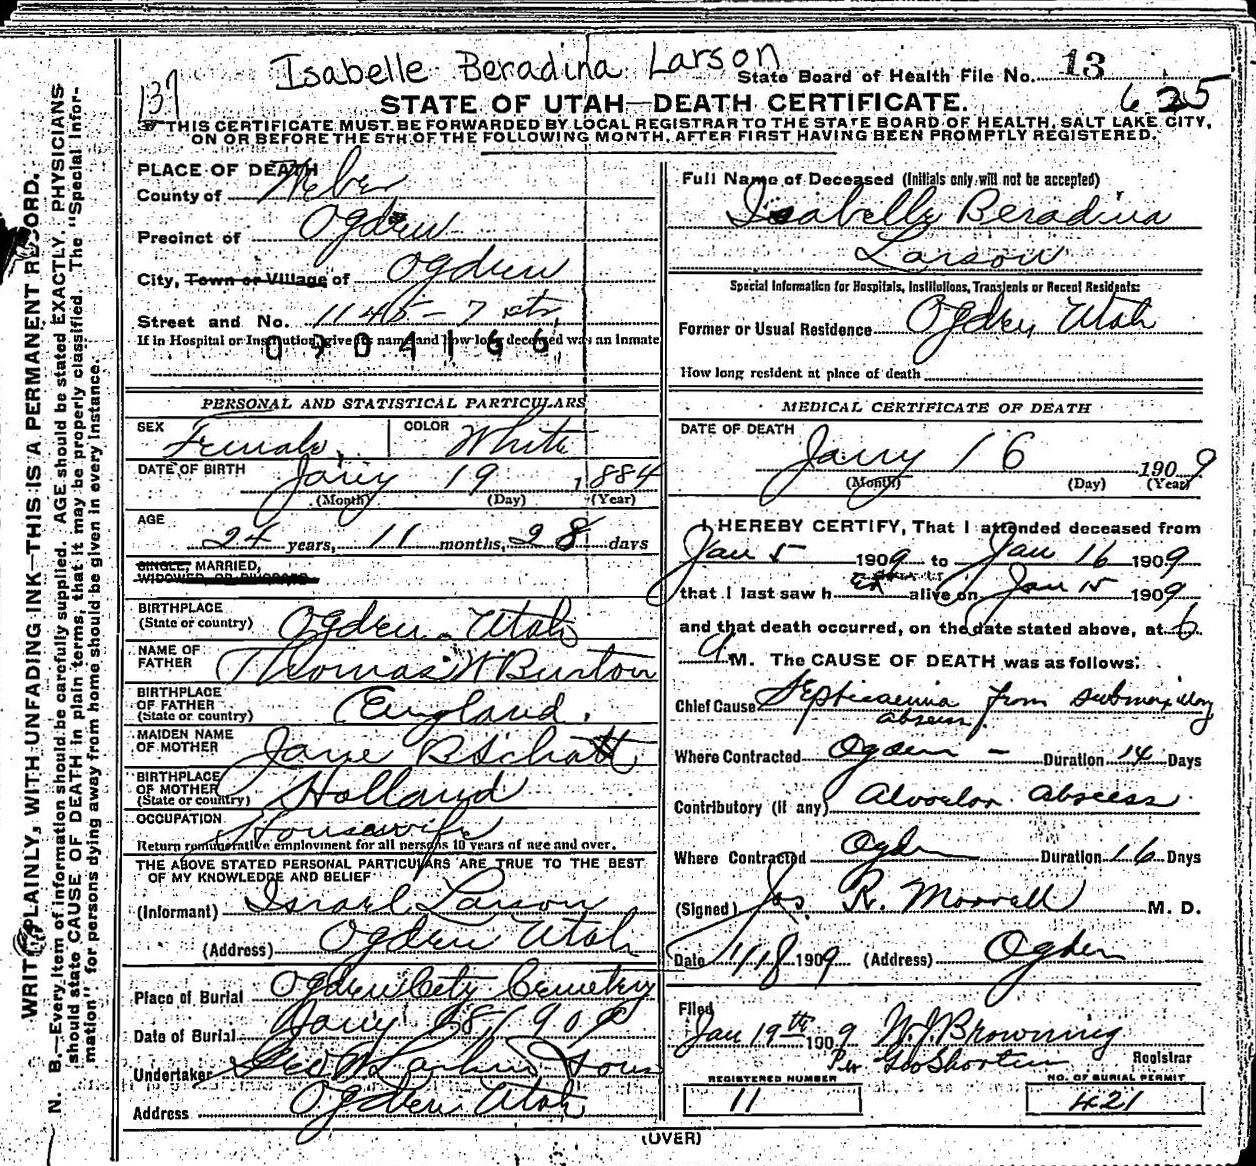 Isabelle Beradina Larson
State Board of Health File No. 13
137
625
STATE OF UTAH—DEATH CERTIFICATE.
THIS CERTIFICATE MUST BE FORWARDED BY LOCAL REGISTRAR TO THE STATE BOARD OF HEALTH, SALT LAKE CITY,
ON OR BEFORE THE 5TH OF THE FOLLOWING MONTH, AFTER FIRST HAVING BEEN PROMPTLY REGISTERED.
WRITE PLAINLY, WITH UNFADING INK—THIS IS A PERMANENT RECORD.
N. B.—Every item of information should be carefully supplied. AGE should be stated EXACTLY. PHYSICIANS
should state CAUSE OF DEATH in plain terms, that it may be properly classified. The "Special Infor-
mation" for persons dying away from home should be given in every instance.
PLACE OF DEATH
County of Weber
Precinct of Ogden
City, Town or Village of Ogden
Street and No. 1145 - 7 st,
If in Hospital or Institution, give its name and how long deceased was an inmate
0904166
PERSONAL AND STATISTICAL PARTICULARS
SEX Female
COLOR White
DATE OF BIRTH Jany 19 1884
(Month) (Day) (Year)
AGE
24 years, 11 months, 28 days
SINGLE, MARRIED,
WIDOWED, OR DIVORCED
BIRTHPLACE
(State or country) Ogden, Utah
NAME OF
FATHER Thomas W Burton
BIRTHPLACE
OF FATHER
(State or country) England.
MAIDEN NAME
OF MOTHER Jane
BIRTHPLACE
OF MOTHER
(State or country) Holland
OCCUPATION Housewife
Return remunerative employment for all persons 10 years of age and over.
THE ABOVE STATED PERSONAL PARTICULARS ARE TRUE TO THE BEST
OF MY KNOWLEDGE AND BELIEF
(Informant) Israel Larson
(Address) Ogden Utah
Place of Burial Ogden City Cemetery
Date of Burial Jany 18 / 909
Undertaker Geo W Larkin Sons
Address Ogden Utah
Full Name of Deceased (Initials only will not be accepted)
Isabelle Beradina
Larson
Special Information for Hospitals, Institutions, Transients or Recent Residents:
Former or Usual Residence Ogden, Utah
How long resident at place of death
MEDICAL CERTIFICATE OF DEATH
DATE OF DEATH
Jany 16 1909
(Month) (Day) (Year)
I HEREBY CERTIFY, That I attended deceased from
Jan 5 1909 to Jan 16 1909
that I last saw her alive on Jan 15 1909
and that death occurred, on the date stated above, at 6
A M. The CAUSE OF DEATH was as follows:
Chief Cause Septicaemia from submaxillary
abscess
Where Contracted Ogden - Duration 14 Days
Contributory (if any) Alveolar Abscess
Where Contracted Ogden Duration 16 Days
(Signed) Jos. R. Morrell M. D.
Date 1/18 1909 (Address) Ogden
Filed
Jan 19th 1909 W.J. Browning
Per Geo Shorten Registrar
REGISTERED NUMBER
11
NO. OF BURIAL PERMIT
421
(OVER)